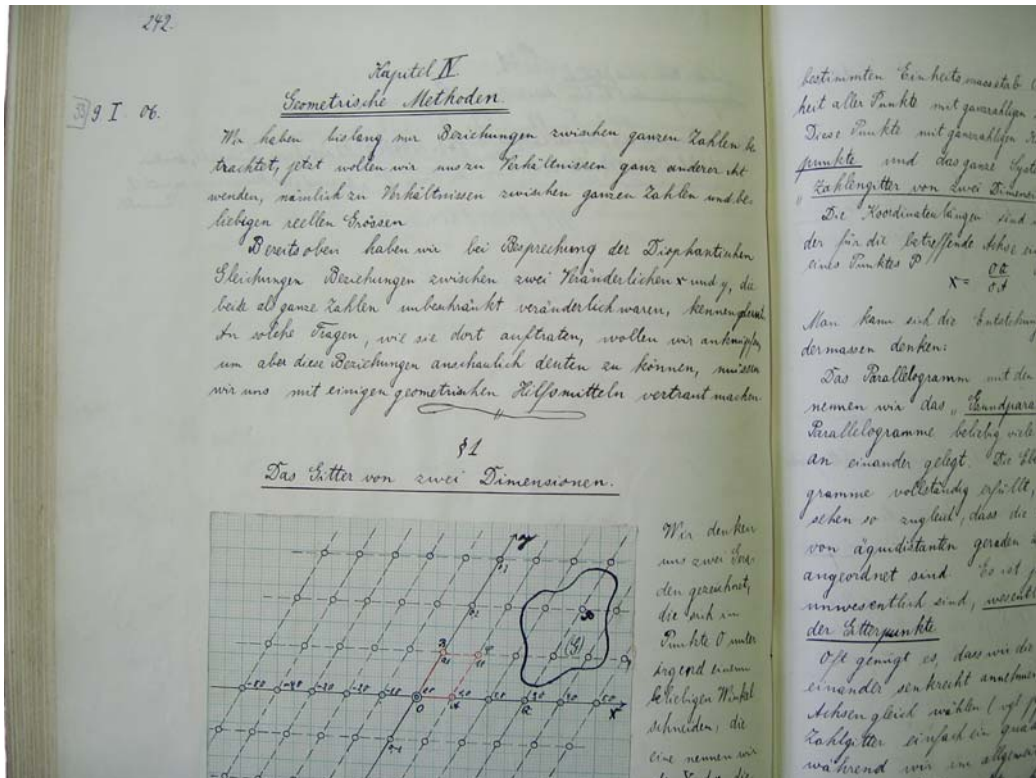 242.
Kapitel IV.
Geometrische Methoden.
9. I. 06.
Wir haben bislang nur Beziehungen zwischen ganzen Zahlen be
trachtet, jetzt wollen wir uns zu Verhältnissen ganz anderer Art
wenden, nämlich zu Verhältnissen zwischen ganzen Zahlen und be-
liebigen reellen Grössen
Bereits oben haben wir bei Besprechung der Diophantischen
Gleichungen Beziehungen zwischen zwei Veränderlichen x und y, die
beide als ganze Zahlen unbeschränkt veränderlich waren, kennengelernt.
An solche Fragen, wie sie dort auftraten, wollen wir anknüpfen,
um aber diese Beziehungen anschaulich deuten zu können, müssen
wir uns mit einigen geometrischen Hilfsmitteln vertraut machen.
§ 1
Das Gitter von zwei Dimensionen.
Wir denken
uns zwei Gera-
den gezeichnet,
die sich im
Punkte O unter
irgend einem
beliebigen Winkel
schneiden, die
eine nennen wir
y
P
(G)
O
A
Q
x
bestimmten Einheitsmassstab
heit aller Punkte mit ganzzahligen
Diese Punkte mit ganzzahligen
punkte und das ganze System
"Zahlengitter von zwei Dimen
Die Koordinatenlängen sind
der für die betreffende Achse
eines Punktes P
x = OQ / OA
Man kann sich die Entstehung
dermassen denken:
Das Parallelogramm mit den
nennen wir das „Grundpara
Parallelogramme beliebig viele
an einander gelegt. Die Eb
gramme vollständig erfüllt,
sehen so zugleich, dass die
von äquidistanten geraden
angeordnet sind. Es ist
unwesentlich sind, wesentl
der Gitterpunkte
Oft genügt es, dass wir die
einander senkrecht annehmen
Achsen gleich wählen (vgl
Zahlgitter einfach ein qua
während wir im allgemei